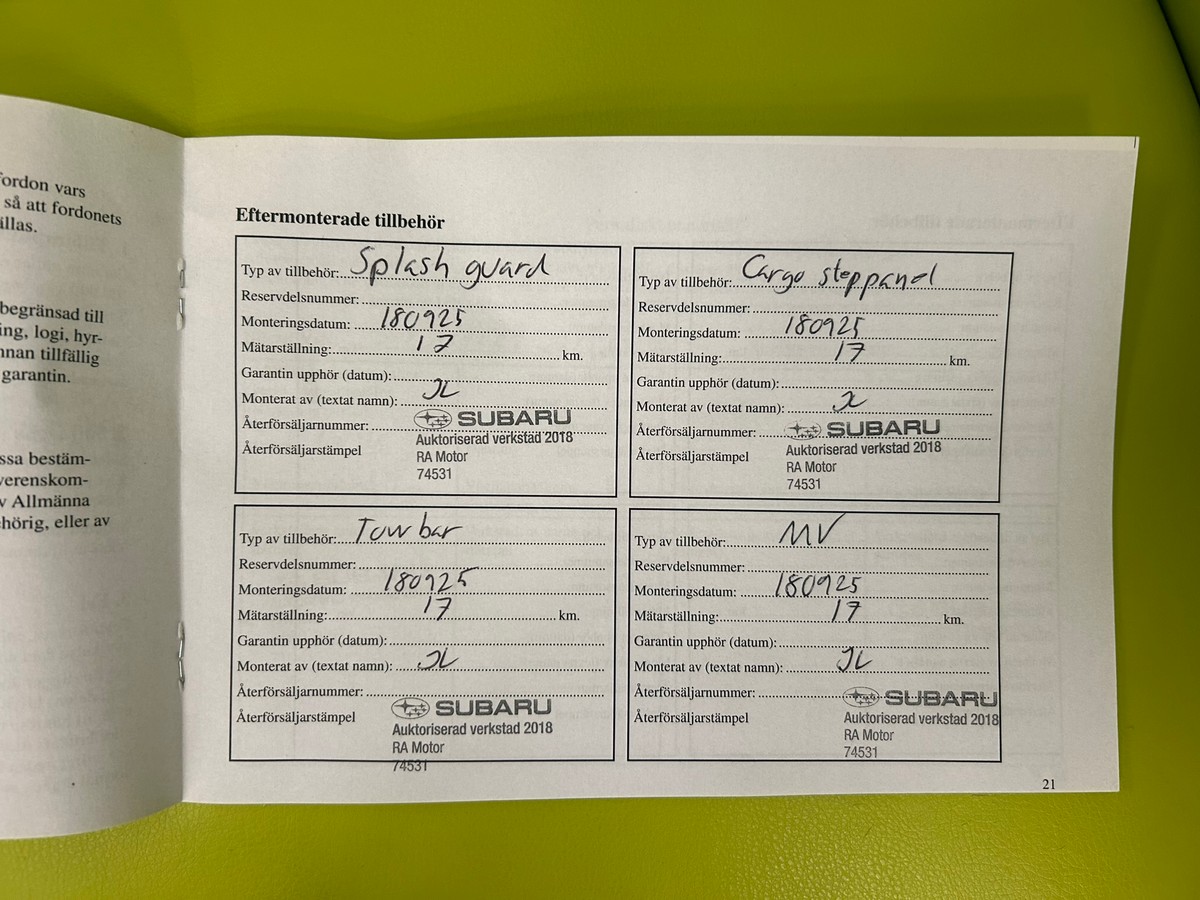 fordon vars
så att fordonets
ällas.
begränsad till
ing, logi, hyr-
nnan tillfällig
garantin.
ssa bestäm-
verenskom-
v Allmänna
ehörig, eller av
Eftermonterade tillbehör
Typ av tillbehör: Splash guard
Reservdelsnummer:
Monteringsdatum: 180925
Mätarställning: 17 km.
Garantin upphör (datum):
Monterat av (textat namn): JL
Återförsäljarnummer: SUBARU
Återförsäljarstämpel Auktoriserad verkstad 2018
RA Motor
74531
Typ av tillbehör: Cargo steppanel
Reservdelsnummer:
Monteringsdatum: 180925
Mätarställning: 17 km.
Garantin upphör (datum):
Monterat av (textat namn): JL
Återförsäljarnummer: SUBARU
Återförsäljarstämpel Auktoriserad verkstad 2018
RA Motor
74531
Typ av tillbehör: Tow bar
Reservdelsnummer:
Monteringsdatum: 180925
Mätarställning: 17 km.
Garantin upphör (datum):
Monterat av (textat namn): JL
Återförsäljarnummer:
Återförsäljarstämpel SUBARU
Auktoriserad verkstad 2018
RA Motor
74531
Typ av tillbehör: MV
Reservdelsnummer:
Monteringsdatum: 180925
Mätarställning: 17 km.
Garantin upphör (datum):
Monterat av (textat namn): JL
Återförsäljarnummer: SUBARU
Återförsäljarstämpel Auktoriserad verkstad 2018
RA Motor
74531
21